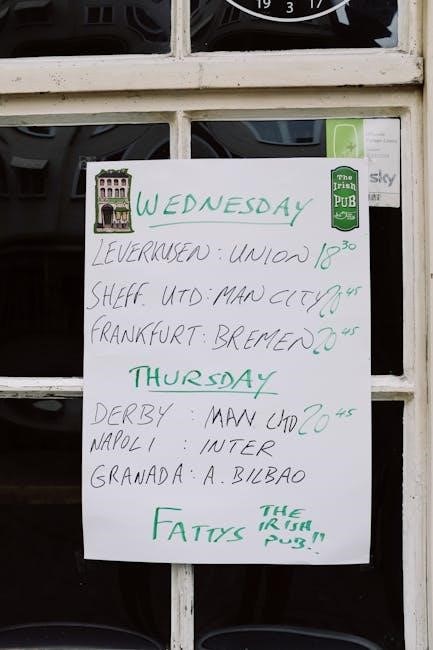 19 3 17
sky
The
Irish
PUB
WEDNESDAY
LEVERKUSEN : UNION 18 30
SHEFF. UTD : MAN CITY 20 45
FRANKFURT : BREMEN 20 45
THURSDAY
DERBY : MAN UTD 20 45
NAPOLI : INTER
GRANADA : A. BILBAO
FATTYS THE
IRISH
PUB!!